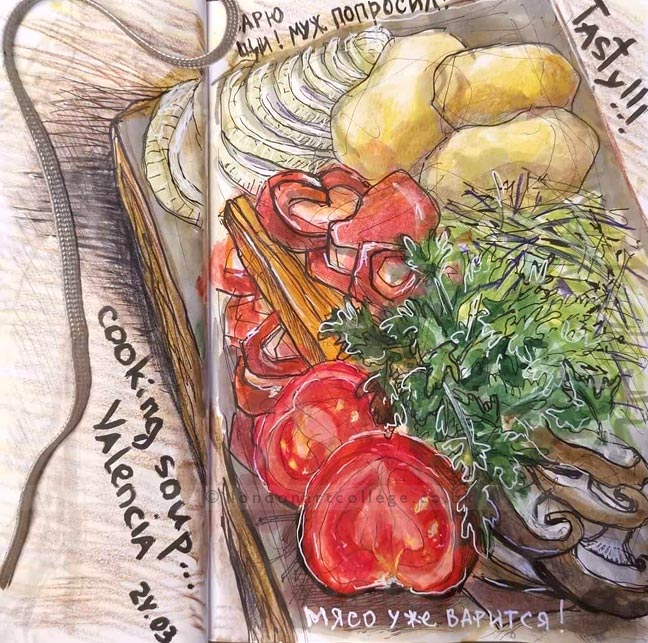 АРЮ
ЩИ! МУЖ ПОПРОСИЛ!
TASTY!!!
cooking soup...
VALENCIA 24.03
© londonartcollege.co
МЯСО УЖЕ ВАРИТСЯ!